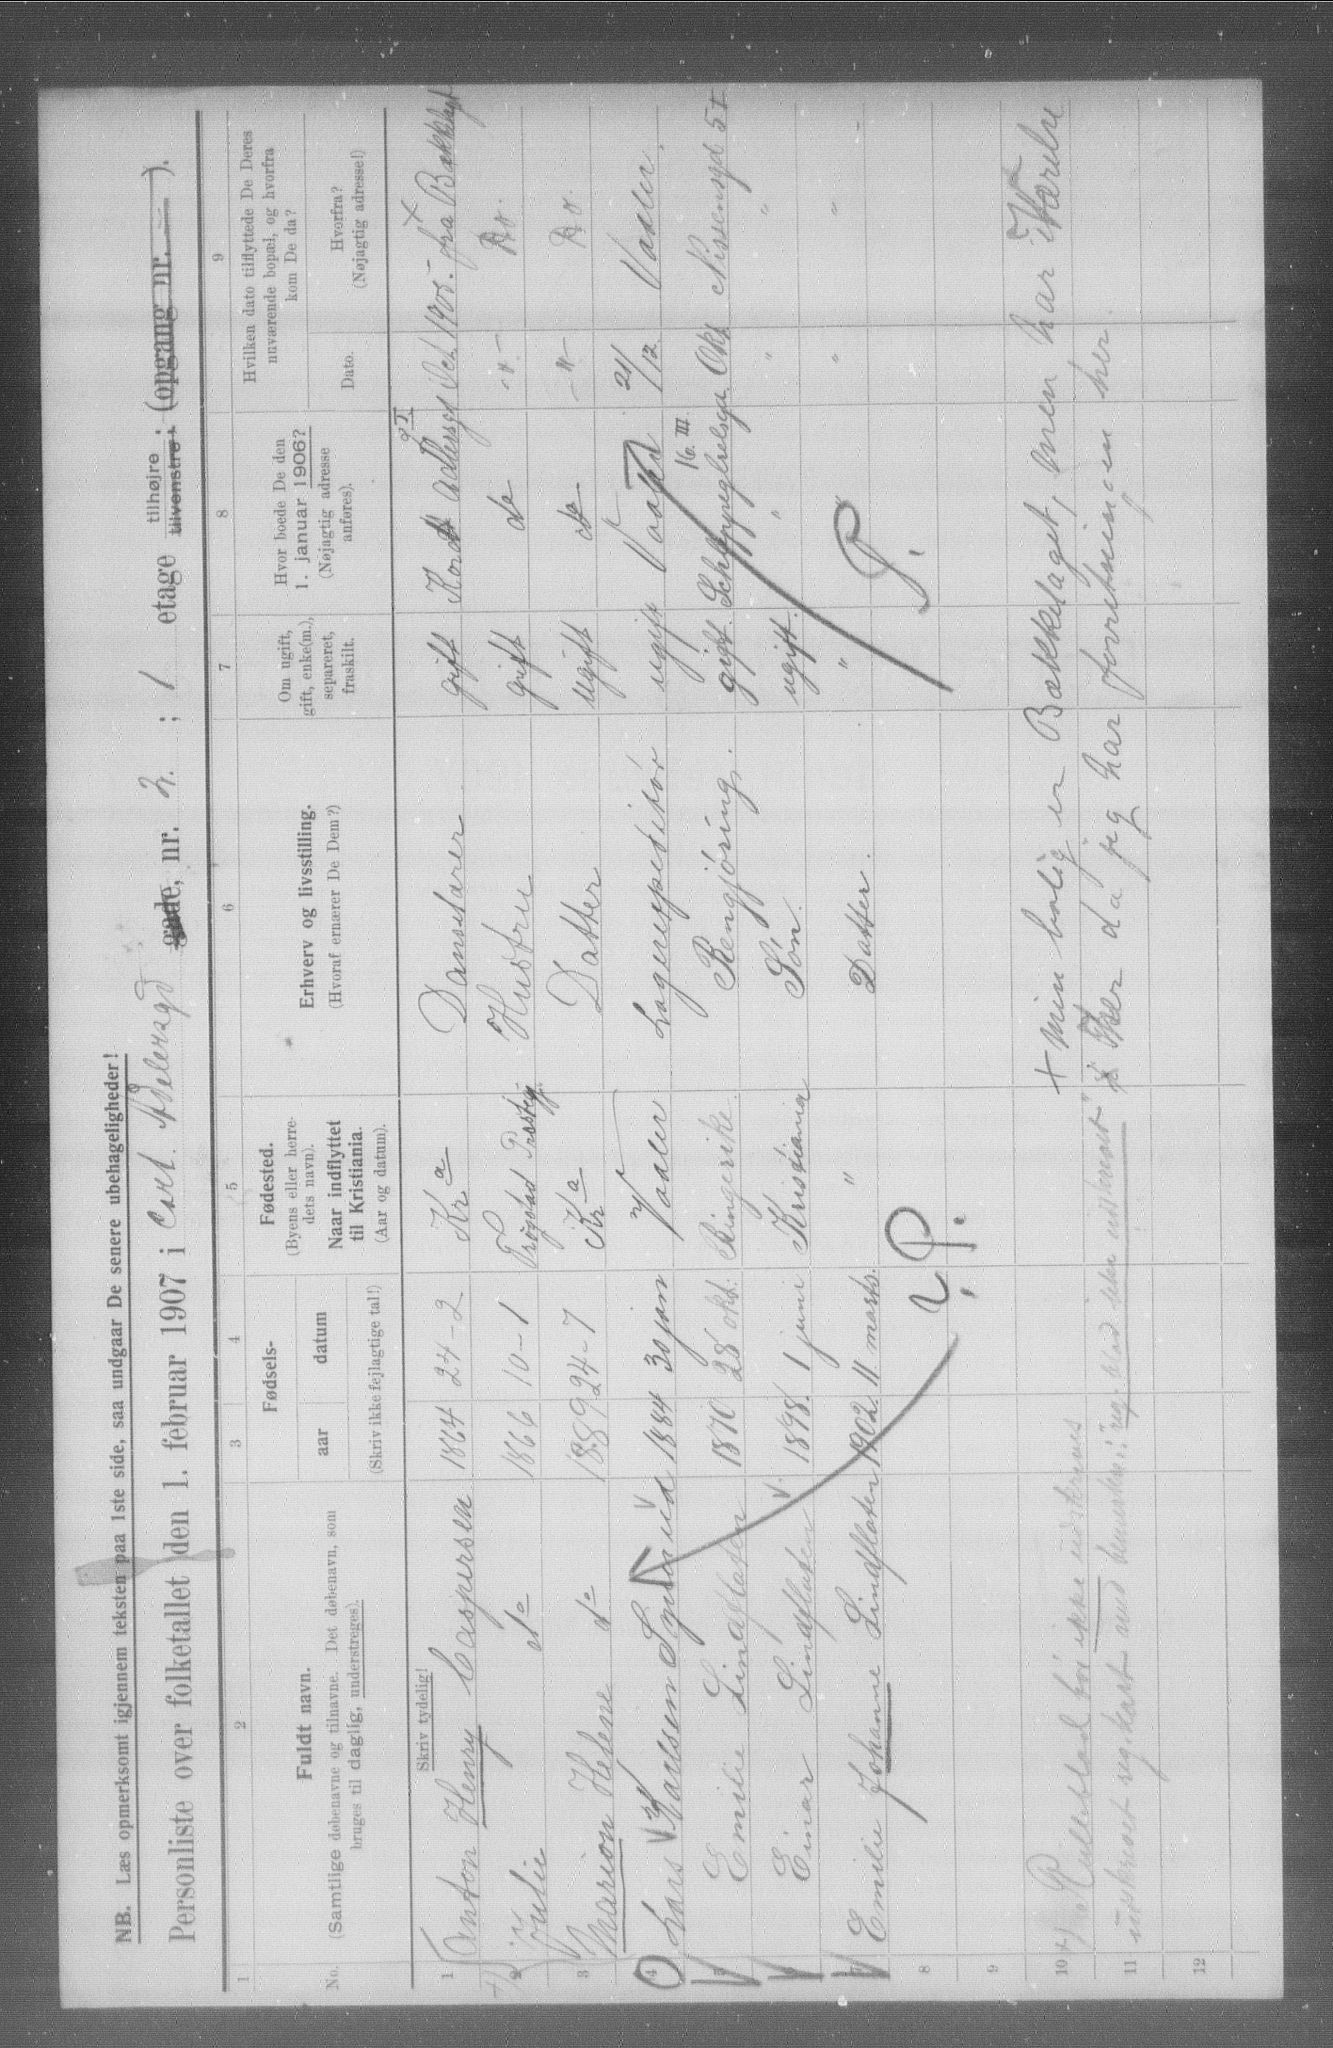 NB. Læs opmerksomt igjennem teksten paa 1ste side, saa undgaar De senere ubehageligheder!
Personliste over folketallet den 1. februar 1907 i Cort Adelersgd gade, nr. 2. ; 1 etage tilhøjre tilvenstre ; (opgang nr. — ).
1 2 3 4 5 6 7 8 9
No.
Fuldt navn.
(Samtlige døbenavne og tilnavne. Det døbenavn, som
bruges til daglig, understreges).
Fødsels-
aar datum
(Skriv ikke fejlagtige tal!)
Fødested.
(Byens eller herre-
dets navn).
Naar indflyttet
til Kristiania.
(Aar og datum).
Erhverv og livsstilling.
(Hvoraf ernærer De Dem?)
Om ugift,
gift, enke(m.),
separeret,
fraskilt.
Hvor boede De den
1. januar 1906?
(Nøjagtig adresse
anføres).
Hvilken dato tilflyttede De Deres
nuværende bopæl, og hvorfra
kom De da?
Dato.
Hvorfra?
(Nøjagtig adresse!)
Skriv tydelig!
1 Anton Henry Caspersen 1864 24-2 Kra Danselærer gift Kort Adlersgd 2 I Oct 1905 - fra Bækklagt +
2 Julie do 1866 10-1 Trøgstad Præstegj. Hustru gift do -"- Do.
3 Marion Helene do 1889 24-7 Kra Datter ugift do -"- Do.
4 Lars Karlsen 1884 30 jan Vaaler Lagerexpeditør ugift Vaaler 21/12 Vaaler.
5 Emilie Lindfloten 1870 28 okt. Ringerike. Rengjøring. gift. 16. III. Okt Nissensgd 5 I
6 Einar Lindfloten 1898. 1 juni Kristiania Søn. ugift. " " "
7 Emilie Johanne Lindfloten 1902. 11 marts. " Datter. " " " "
? P.
P.
8
9
10
11
12
+ Min bolig er Bækkelaget, men har Værelse
her da jeg har forretningen her.
bør ikke udskrives